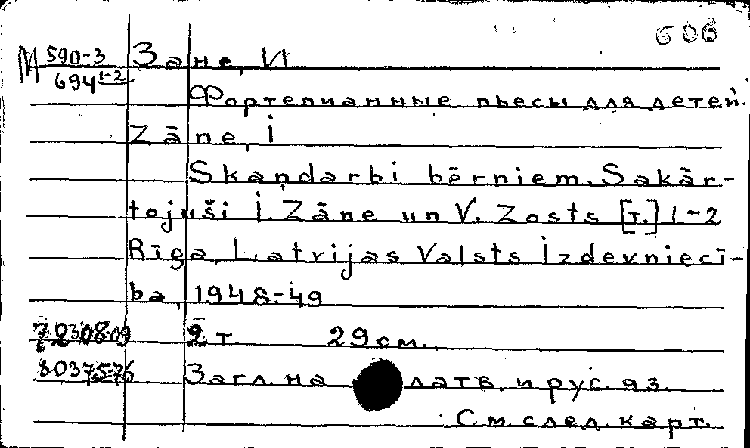 606
М 590-3 Зане, И
694 1-2
Фортепианные пьесы для детей.
Zāne, I
Skaņdarbi bērniem. Sakār-
tojuši I. Zāne un V. Zosts [т.] 1-2
Rīga, Latvijas Valsts Izdevniecī-
ba, 1948-49
2 т 29 см.
80375-76 Загл. на латв. и рус. яз.
См. след. карт.